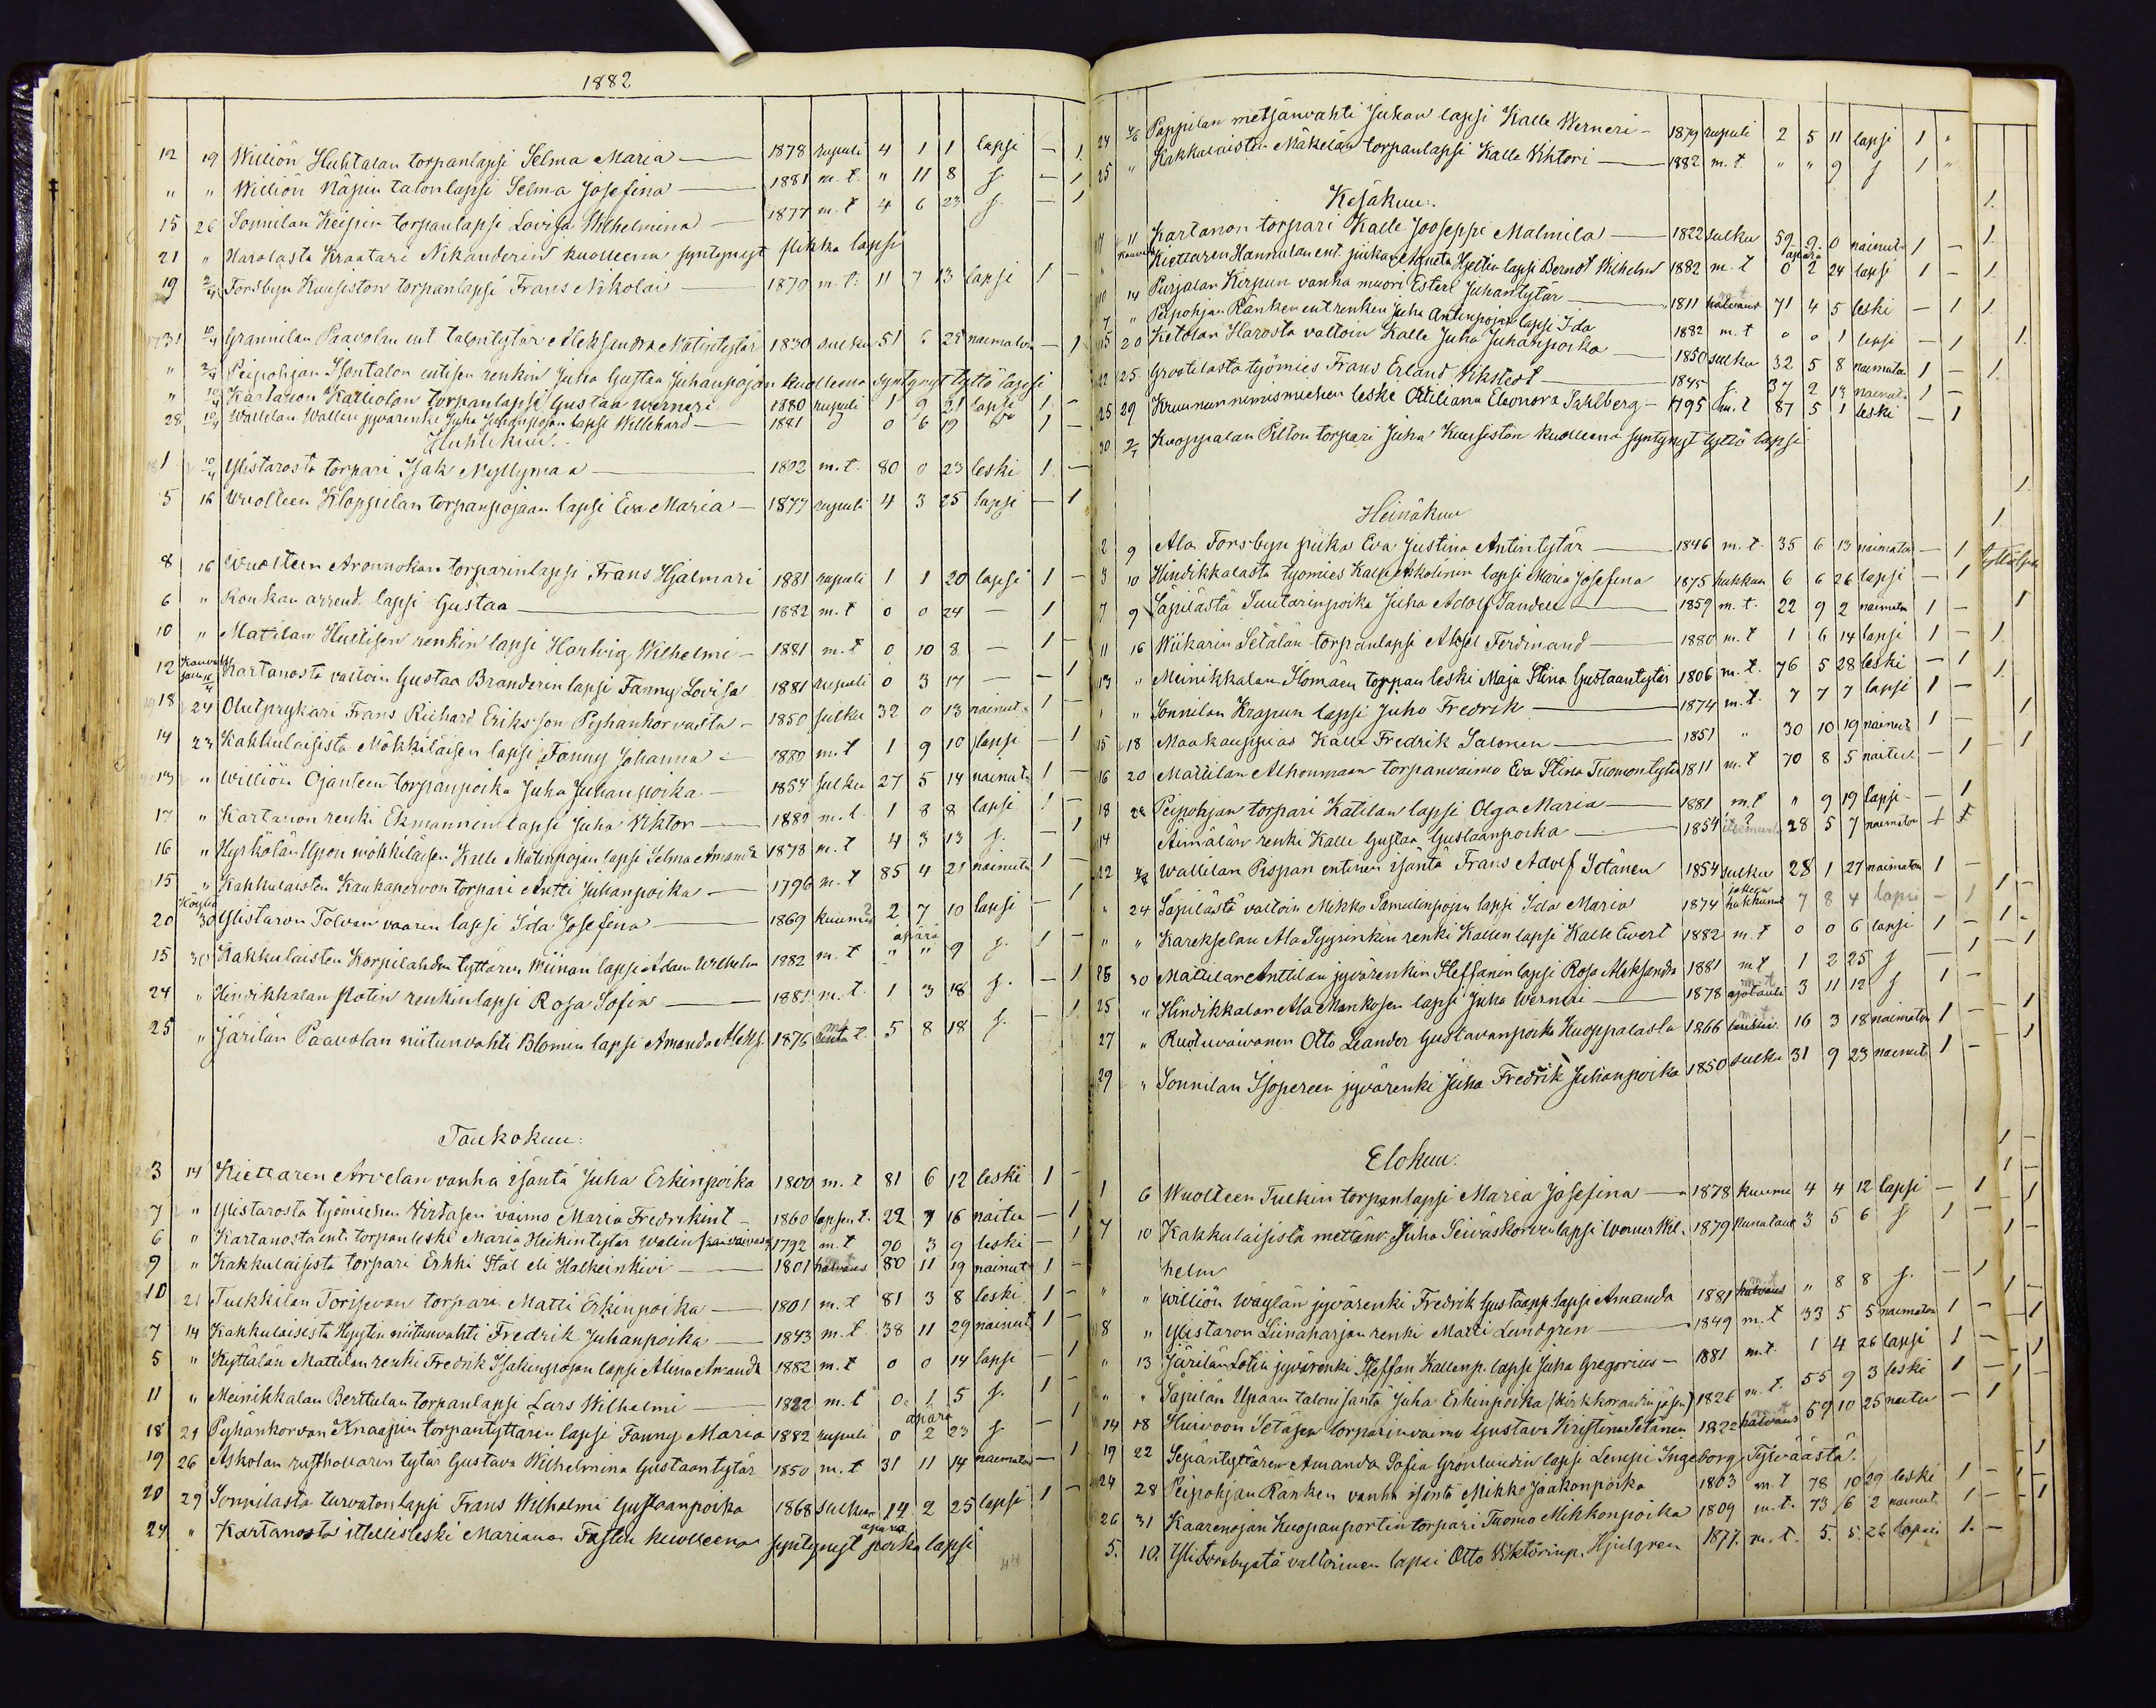 1882
12 19 Williön Huhtalan torpanlapsi Selma Maria — 1878 rupuli 4 1 1 lapsi — 1
" " Williön Näpin talonlapsi Selma Josefina — 1881 m. t. " 11 8 s. — 1
15 26 Sonnilan Keipin torpanlapsi Lovisa Wilhelmina — 1877 m. t 4 6 23 s. — 1
21 " Harolasta Kraatari Nikanderin kuolleena syntynyt flikka lapsi
19 2/4 Forsbyn Kuusiston torpanlapsi Frans Nikolai — 1870 m. t. 11 7 13 lapsi 1 —
31 10/4 Grannilan Paavolan ent. talontytär Aleksandra Matintytär 1830 sulku 51 6 29 naimaton — 1
" 2/4 Peipohjan Isontalon entisen renkin Juha Gustaa Juhanpojan kuolleena syntynyt tyttö lapsi
" 10/4 Kartanon Karliolan torpanlapsi Gustaa Werneri 1880 rupuli 1 9 21 lapsi 1 —
28 10/4 Wallilan Wallin jyvärenki Juha Juhanpojan lapsi Willehard — 1881 0 6 19 1 —
Huhtikuu.
1 10/4 Ylistarosta torpari Isak Nyllymaa — 1802 m. t. 80 0 23 leski 1 —
5 16 Wuolteen Kloppilan torpanpojaan lapsi Eva Maria — 1877 rupuli 4 3 25 lapsi — 1
8 16 Wuolteen Aronnokan torparinlapsi Frans Hjalmari 1881 rupuli 1 1 20 lapsi 1 —
6 " Konkan arrend. lapsi Gustaa — 1882 m. t 0 0 24 — 1
10 " Matilan Huttisen renkin lapsi Hartvig Wilhelmi — 1881 m. t 0 10 8 — 1 —
12 Kartanosta vaitoin Gustaa Branderin lapsi Fanny Lovisa 1881 rupuli 0 3 17 — — 1
18 24 Olutprykari Frans Richard Eriksson Pyhankorvalta — 1850 sulku 32 0 13 nainut 1 —
14 23 Kakkulaisista Mökkiläisen lapsi Fanny Johanna — 1880 m. t 1 9 10 lapsi — 1
13 " Williön Ojanteen torpanpoika Juha Juhanpoika — 1854 sulku 27 5 14 nainut 1 —
17 " Kartanon renki Ekmannin lapsi Juha Viktor — 1880 m. t. 1 8 8 lapsi 1 —
16 " Hyrkölän Upon mökkiläisen Kalle Matinpojan lapsi Selma Amanda 1878 m. t 4 3 13 s. — 1
15 " Kakkulaisten Kauhapervon torpari Antti Juhanpoika — 1796 m. t 85 4 21 nainut 1 —
20 30 Ylistaron Tolvan vaarin lapsi Ida Josefina — 1869 kuume 2 7 10 lapsi — 1
15 30 Kakkulaisten Korpilahden tyttären Wiinan lapsi Adam Wilhelm 1882 m. t äpärä " " 9 s. 1 —
24 " Hindikkalan Rotin renkinlapsi Rosa Sofia — 1881 m. t. 1 3 18 s. — 1
25 " Järilän Paavolan niitunvahti Blomin lapsi Amanda Aleks. 1876 m. t. 5 8 18 s. — 1
Toukokuu:
3 14 Kiettaren Arvelan vanha isäntä Juha Erkinpoika 1800 m. t 81 6 12 leski 1 —
7 " Ylistarosta työmiehen Virtasen vaimo Maria Fredrikint — 1860 lapsen t. 22 7 16 naitu — 1
6 " Kartanosta ent. torpanleski Maria Heikintytär Walin 1792 m. t 90 3 9 leski — 1
9 " Kakkulaisista torpari Erkki Stål eli Halkeinkivi — 1801 halvaus 80 11 19 nainut 1 —
10 21 Tulkkilan Torisevan torpari Matti Erkinpoika — 1801 m. t 81 3 8 leski 1 —
7 14 Kakkulaisista Hyytin niitunvahti Fredrik Juhanpoika — 1843 m. t. 38 11 29 nainut 1 —
5 " Kyttälän Mattilan renki Fredrik Isakinpojan lapsi Alina Amanda 1882 m. t 0 0 14 lapsi — 1
11 " Meinikkalan Berttulan torpanlapsi Lars Wilhelmi — 1882 m. t 0 1 5 s. 1 —
18 21 Pyhänkorvan Knaapin torpantyttären lapsi Fanny Maria 1882 rupuli äpärä 0 2 23 s. — 1
19 26 Askolan rusthollarin tytär Gustava Wilhelmina Gustaantytär 1850 m. t 31 11 14 naimaton — 1
20 29 Sonnilasta turvaton lapsi Frans Wilhelmi Gustaanpoika 1868 sulku 14 2 25 lapsi 1 —
24 " Kartanosta itellisleski Mariana Fasten kuolleena syntynyt äpärä poika lapsi
24 4/6 Pappilan metsänvahti Jukan lapsi Kalle Werneri — 1879 rupuli 2 5 11 lapsi 1 "
25 " Kakkulaisten Mäkelän torpanlapsi Kalle Viktori — 1882 m. t. " " 9 s 1 "
Kesäkuu:
11 Kartanon torpari Kalle Jooseppi Malmila — 1822 sulku 59 9 0 nainut 1 —
Kiettaren Hannulan ent. piikan Agneta Hjeltin lapsi Berndt Wilhelm 1882 m. t äpärä 0 2 24 lapsi 1 —
10 14 Purjalan Kirpun vanha muori Esteri Juhantytär — 1811 halvaus 71 4 5 leski — 1
7 " Peipohjan Ränken ent renkin Juha Antinpojan lapsi Ida 1882 m. t 0 0 1 lapsi — 1
15 20 Ketolan Harosta valtoin Kalle Juha Juhanpoika — 1850 sulku 32 5 8 naimaton 1 —
22 25 Grootilasta työmies Frans Erland Vikstedt — 1845 s. 37 2 13 nainut 1 —
25 29 Kruunun nimismiehen leski Ottiliana Eleonora Sahlberg — 1795 m. t 87 5 1 leski — 1
30 2/7 Kuoppalan Pilton torpari Juha Kuusiston kuolleena syntynyt tyttö lapsi
Heinäkuu
2 9 Ala Forsbyn piika Eva Justina Antintytär — 1846 m. t. 35 6 13 naimaton — 1
3 10 Hindikkalasta työmies Kalle Eskolinin lapsi Maria Josefina 1875 hukkun 6 6 26 lapsi — 1
7 9 Säpilästä Suutarinpoika Juha Adolf Sandell — 1859 m. t. 22 9 2 naimaton 1 —
11 16 Wiikarin Setälän torpanlapsi Aksel Ferdinand — 1880 m. t 1 6 14 lapsi 1 —
13 " Meinikkalan Ilomäen torpan leski Maja Stina Gustaantytär 1806 m. t. 76 5 28 leski — 1
" " Sonnilan Krapun lapsi Juho Fredrik — 1874 m. t. 7 7 7 lapsi 1 —
15 18 Maakauppias Kalle Fredrik Salonen — 1851 " 30 10 19 nainut 1 —
16 20 Mattilan Alhonmaan torpanvaimo Eva Stina Tuomontytär 1811 m. t 70 8 5 naitu — 1
18 22 Peipohjan torpari Katilan lapsi Olga Maria — 1881 m. t " 9 19 lapsi — 1
14 Äimälän renki Kalle Gustaa Gustaanpoika — 1854 itsemurh. 28 5 7 naimaton 1
22 Wallilan Pispan entinen isäntä Frans Adolf Setänen 1854 sulku 28 1 27 naimaton 1 —
" 24 Säpilästä valtoin Mikko Samulinpojan lapsi Ida Maria 1874 jokeen hukkunut 7 8 4 lapsi — 1
" " Karekselan Ala Sypinkin renki Kallen lapsi Kalle Evert 1882 m. t 0 0 6 lapsi 1 —
28 30 Mattilan Anttilan jyvärenkin Steffanin lapsi Rosa Aleksandra 1881 m. t 1 2 25 s — 1
25 " Hindikkalan Ala Mankosen lapsi Juha Werneri — 1878 ajotauti m. t 3 11 12 s 1 —
27 " Ruotuvaivanen Otto Leander Gustavanpoika Kuoppalasta 1866 m. t. 16 3 18 naimaton 1 —
29 " Sonnilan Isopereen jyvärenki Juha Fredrik Juhanpoika 1850 sulku 31 9 23 nainut 1 —
Elokuu:
1 6 Wuolteen Tulkin torpanlapsi Maria Josefina — 1878 kuume 4 4 12 lapsi — 1
7 10 Kakkulaisista mettänv. Juha Seiväskorven lapsi Werner Wil- 1879 punataut 3 5 6 s 1 —
helm
" " Williön Wäylän jyvärenki Fredrik Gustaanp. lapsi Amanda 1881 halvaus m. t " 8 8 s. — 1
8 " Ylistaron Liinaharjan renki Matti Lundgren — 1849 m. t 33 5 5 naimaton 1 —
" 13 Järilän Lotin jyvärenki Steffan Kallenp. lapsi Juha Gregorius — 1881 m. t. 1 4 26 lapsi 1 —
" " Säpilän Upaan talonisäntä Juha Erkinpoika (kirkkoraadin jäsen) 1826 m. t. 55 9 3 leski 1 —
14 18 Huivoon Setäsen torparinvaimo Gustava Kristina Setänen 1822 halvaus 59 10 25 naitu — 1
19 22 Sepäntyttären Amanda Sofia Grönlundin lapsi Lempi Ingeborg Tyrväästä!
24 28 Peipohjan Ränken vanha isäntä Mikko Jaakonpoika 1803 m. t 78 10 29 leski 1 —
26 31 Kaarenojan Kuopanportin torpari Tuomo Mikkonpoika 1809 m. t. 73 6 2 nainut 1 —
5. 10. Yli Forsbystä valtoimen lapsi Otto Viktorinp. Hjulgren 1877. m. t. 5. 5. 26 lapsi 1. —